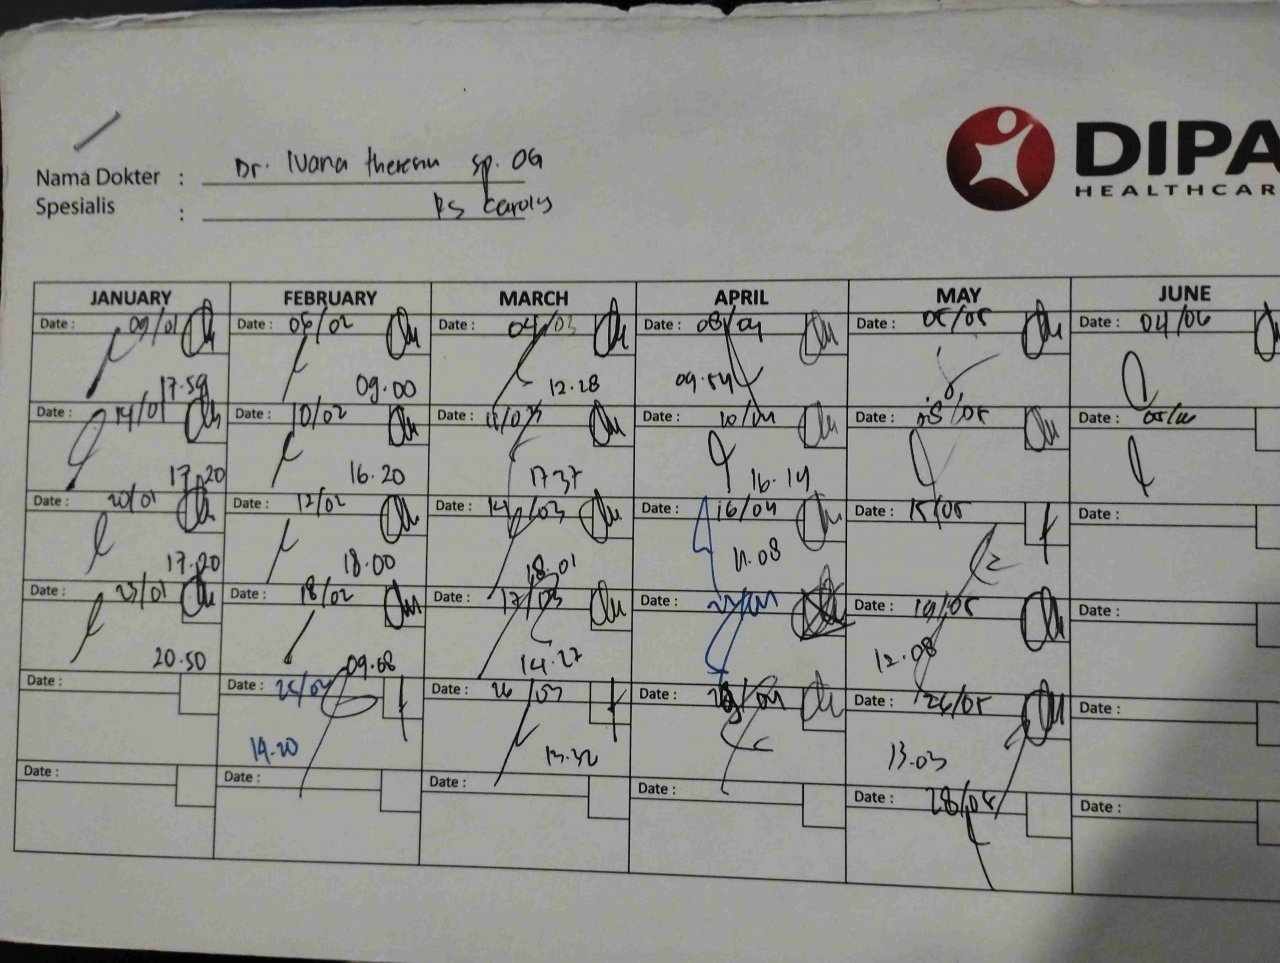 Nama Dokter : Dr. Ivana theresia sp. OG
Spesialis : RS Carolus
DIPA
HEALTHCAR
JANUARY FEBRUARY MARCH APRIL MAY JUNE
Date : 09/01 Date : 06/02 Date : 04/03 Date : 08/04 Date : 05/05 Date : 04/06
17.59 09.00 12.28 09.54
Date : 14/01 Date : 10/02 Date : 11/03 Date : 10/04 Date : 08/05 Date :
17.20 16.20 17.37 16.14
Date : 20/01 Date : 12/02 Date : 14/03 Date : 16/04 Date : 15/05 Date :
17.20 18.00 18.01 11.08
Date : 23/01 Date : 18/02 Date : 17/03 Date : Date : 19/05 Date :
20.50 09.08 14.27 12.08
Date : Date : 25/02 Date : 26/03 Date : Date : 26/05 Date :
14.20 13.32 13.03
Date : Date : Date : Date : Date : 28/05 Date :